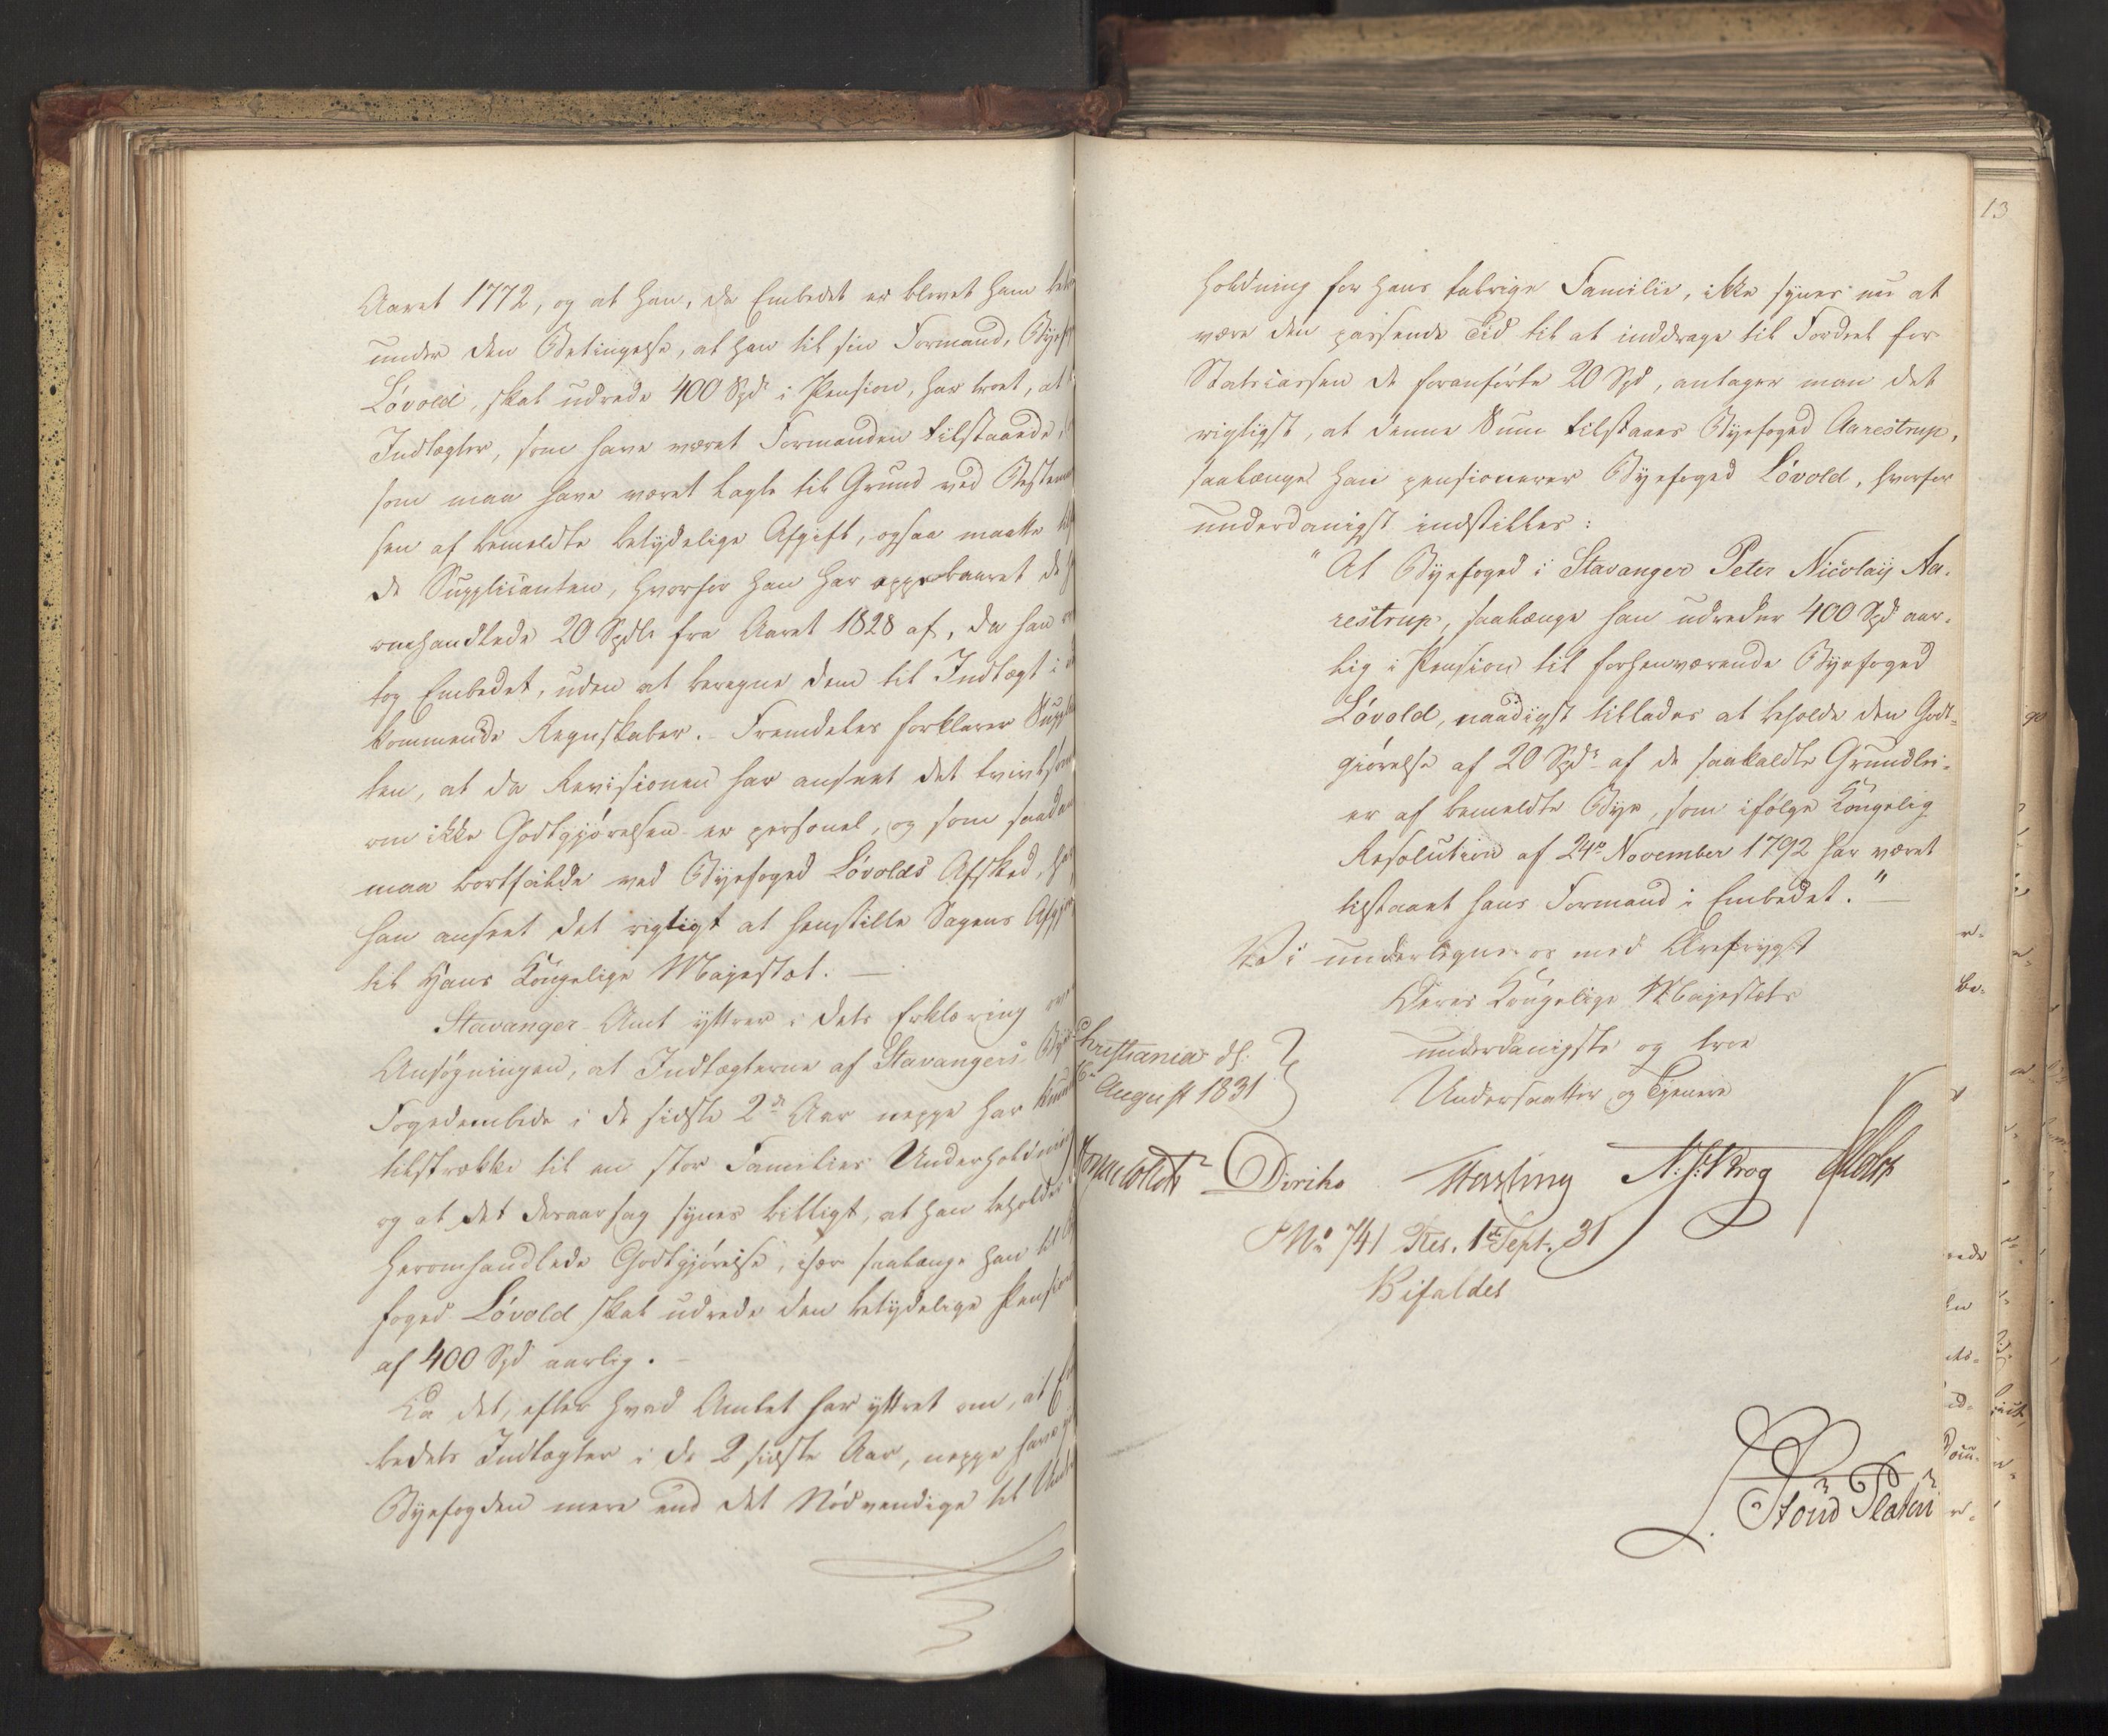 Aaret 1772, og at han, da Embedet er blevet ham
under den Betingelse, at han til sin Formand,
Lövold, skal udrede 400 Spd i Pension, har troet, at
Indtægter, som have været Formanden tilstaaede,
som maa have været lagte til Grund ved
sen af bemeldte betydelige Afgift, ogsaa maatte
de Supplicanten, hvorfor han har oppebaaret de
omhandlede 20 Spdlr fra Aaret 1828 af, da han
tog Embedet, uden at beregne dem til Indtægt i
kommende Regnskaber. Fremdeles forklarer
ten, at da Revisionen har anseet det
om ikke Godtgjörelsen er personel, og som
maa bortfalde ved Byefoged Lövolds Afsked,
han anseet det rigtigt at henstille Sagens
til Hans Kongelige Majestæt. —
Stavanger Amt yttrer i dets Erklæring
Ansögningen, at Indtægterne af Stavangers
Fogedembede i de sidste 2de Aar neppe har
tilstrække til en stor Families
og at det desaarsag synes billigt, at han beholder
heromhandlede Godtgjörelse, især saalænge han
foged Lövold skal udrede den betydelige
af 400 Spd aarlig. –
Da det, efter hvad Amtet har yttret om, at
bedets Indtægter i de 2 sidste Aar, neppe have
Byefogden mere end det Nödvendige til
13
holdning for hans talrige Familie, ikke synes nu at
være den passende Tid til at inddrage til Fordeel for
Statscassen de foranförte 20 Spd, antager man det
rigtigst, at denne Sum tilstaaes Byefoged Aarestrup,
saalænge han pensionerer Byefoged Lövold, hvorfor
underdanigst indstilles:
"At Byefoged i Stavanger Peter Nicolaij Aa-
restrup, saalænge han udreder 400 Spd aar-
lig i Pension til forhenværende Byefoged
Lövold, naadigst tillades at beholde den Godt-
giörelse af 20 Spdr af de saakaldte Grundlei-
er af bemeldte Bye, som ifölge Kongelig
Resolution af 24de November 1792 har været
tilstaaet hans Formand i Embedet." —
Vi undertegne os med Ærefrygt
Deres Kongelige Majestæts
underdanigste og troe
Undersaatter og Tjenere
Christiania d:
August 1831
Diriks N: J: Krog
No 741 Res. 1ste Sept. 31
Bifaldet